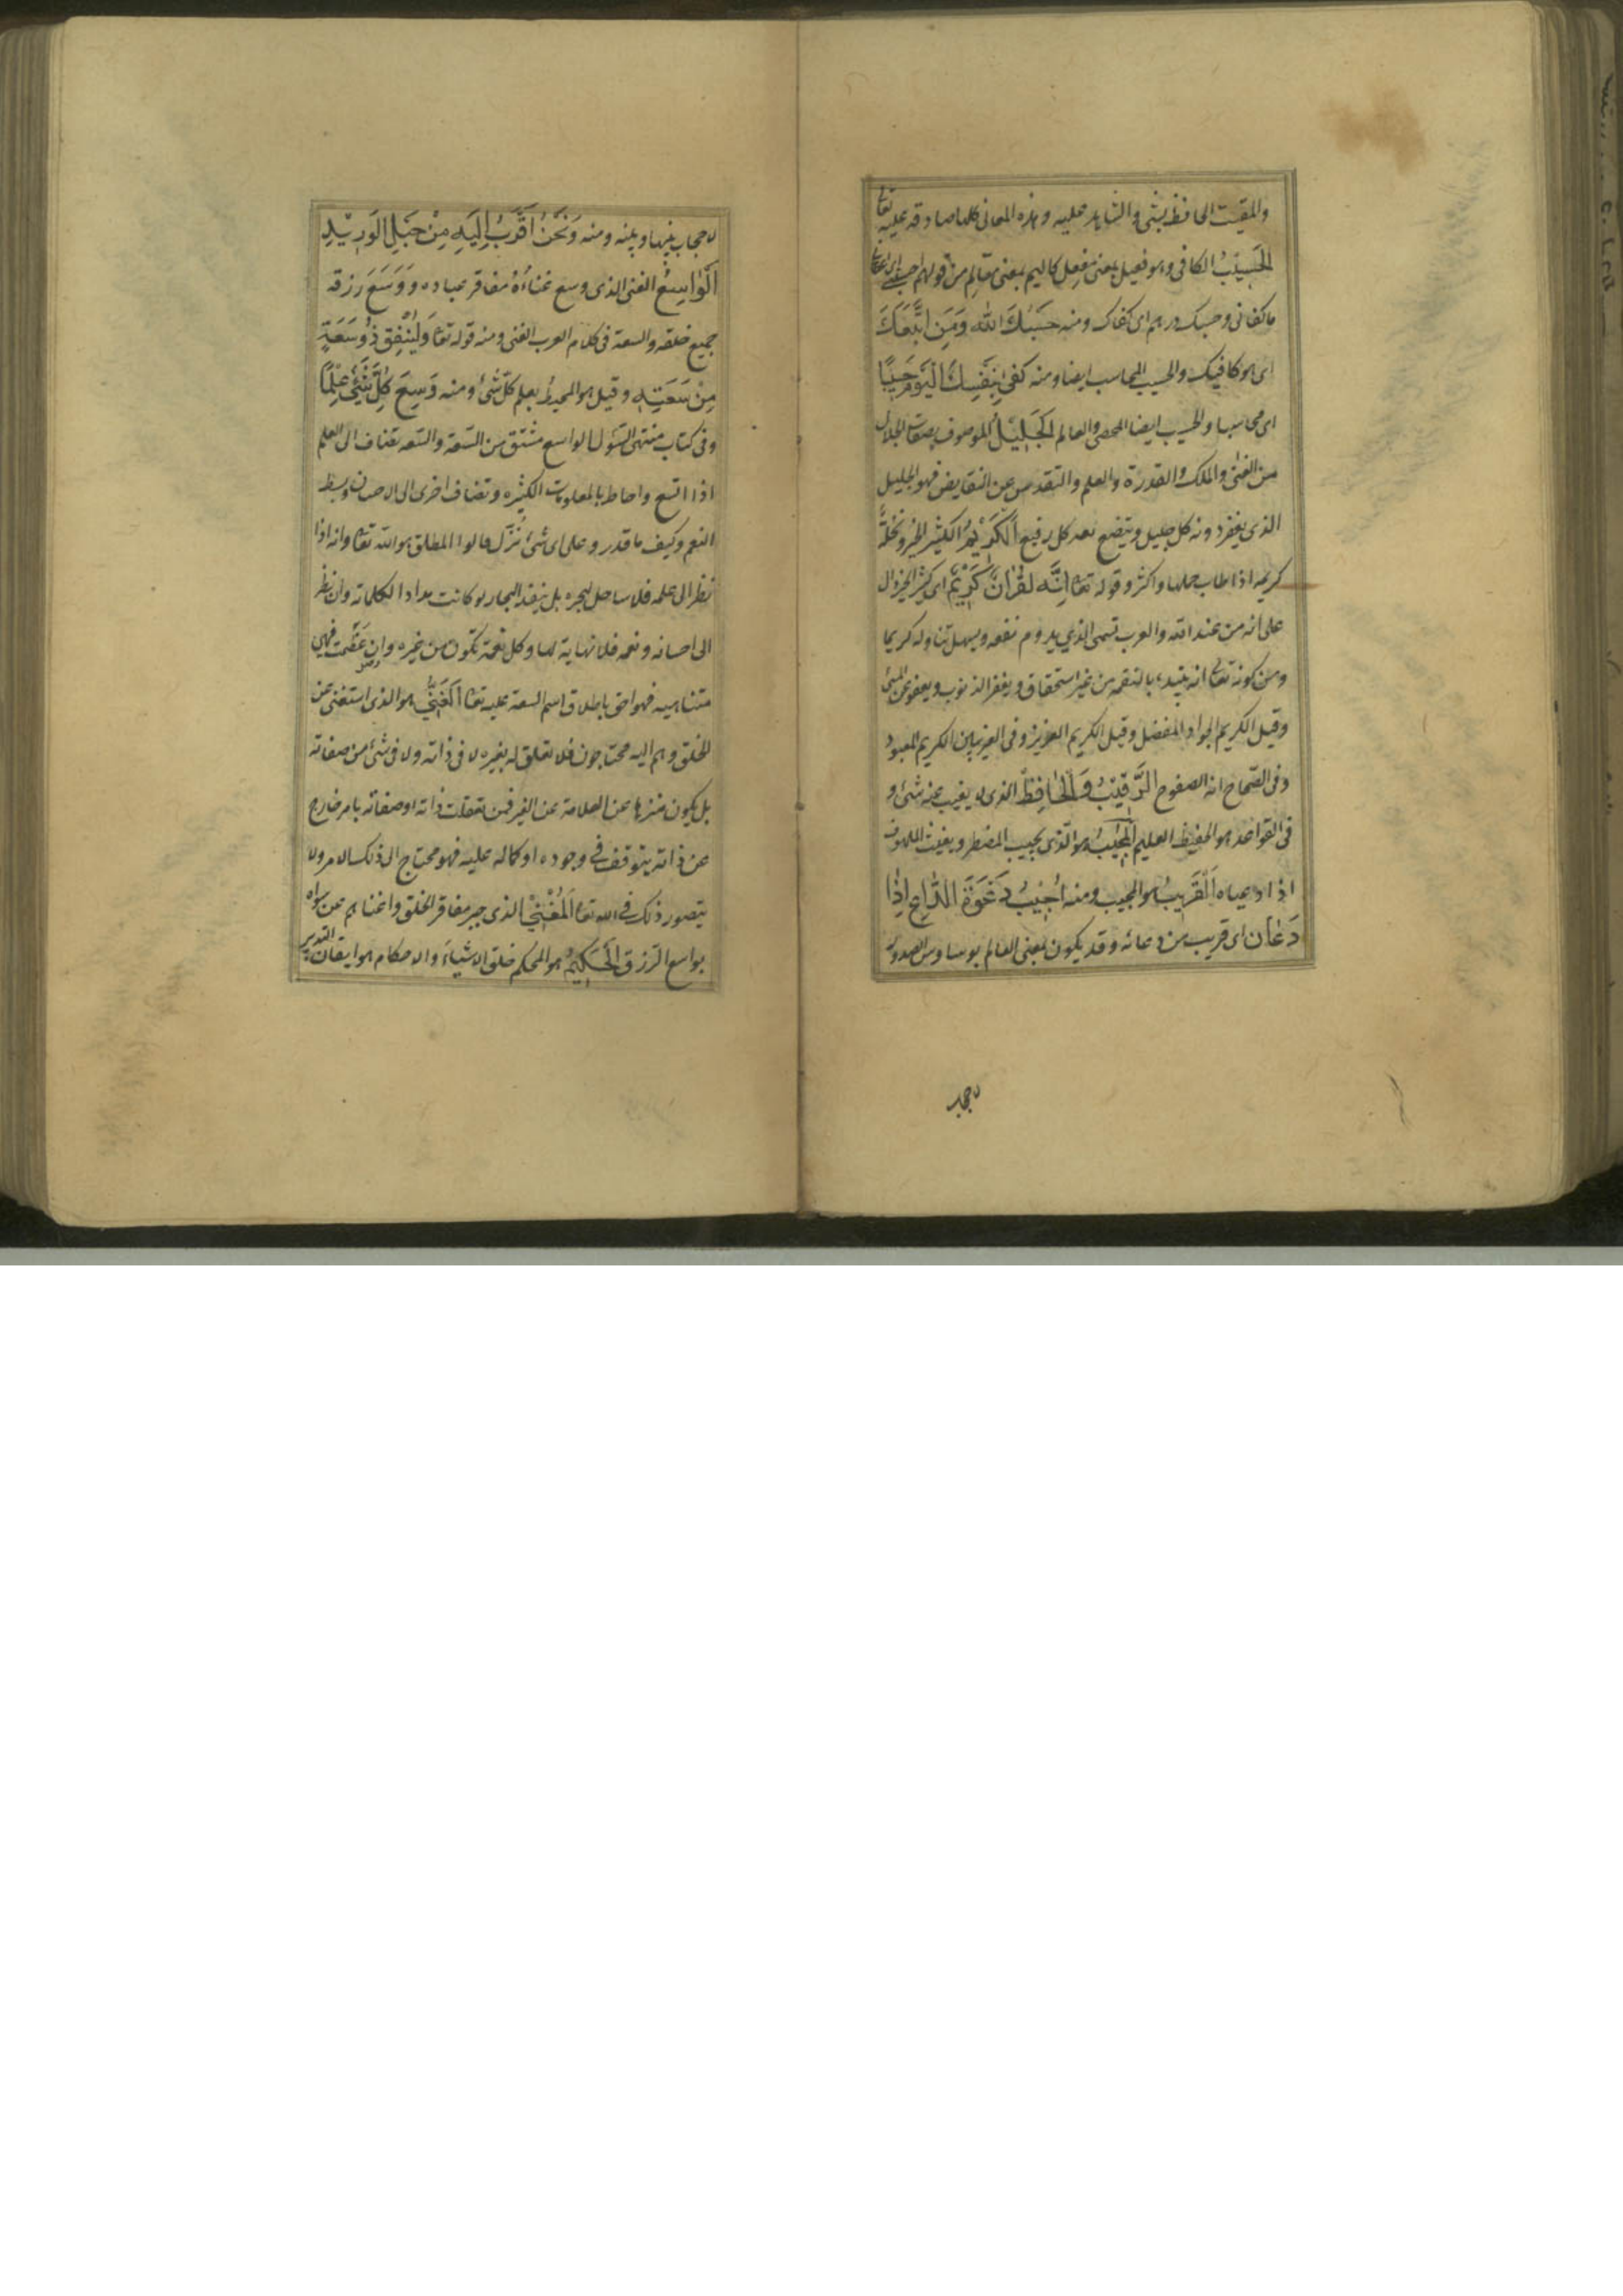 والمقيت الحافظ بشئ والشاهد عليه وهذه المعانى كلها صادقه عليه تعالى
الحَسيبُ الكافى وهو فعيل بمعنى مُفعِل كاليم بمعنى مؤلِم من قولهم احسبنى اى اعطانى
ما كفانى وحسبك درهم اى كفاك ومنه حَسْبُكَ الله وَمَنِ اتَّبَعَكَ
اى هو كافيك والحسيب المحاسب ايضا ومنه كَفىٰ بِنَفْسِكَ اليَومَ حَسِيبًا
اى محاسبا والحسيب ايضا المحصى والعالم الجَلِيلُ الموصوف بصفات الجلال
من الغنى والملك والقدرة والعلم والتقدس عن النقايض فهو الجليل
الذى يصغر دونه كل جليل ويتضع معه كل رفيع الكَرِيْمُ الكثير الخير ونخلة
كريمه اذا طاب حملها واكثر وقوله تعا اِنَّه لقُرْانٌ كَرِيْمٌ اى كثير الخير دال
على انه من عند الله والعرب تسمى الذي يدوم نفعه ويسهل تناوله كريما
ومن كونه تعالى انه يبتدء بالنعمه من غير استحقاق ويغفر الذنوب ويعفو عن المسئ
وقيل الكريم الجواد المفضل وقيل الكريم العزيز وفى الغريبين الكريم المعبود
وفى الصّحاح انه الصفوح الرَّقِيْبُ وَالحَافِظُ الذى لا يغيب عنه شئ و
فى القواعد هو الحفيظ العليم المُجِيْبُ هو الّذى يجيب المضطر ويغيث الملهوف
اذا دعياه اَلْقَرِيبُ هو المجيب ومنه اُجِيْبُ دَعْوَةَ الدّاعِ اِذٰا
دَعٰانِ اى قريب من دعائه وقد يكون بمعنى العالم بوساوس الصدور
لا حجاب
لا حجاب بينها وبينه ومنه وَنَحْنُ اَقْرَبُ اِلَيهِ مِنْ حَبْلِ الوَرِيْدِ
الْوٰاسِعُ الغنى الذى وسع غناءُهُ مفاقر عباده وَوَسَعَ رزقه
جميع خلقه والسعة فى كلام العرب الغنى ومنه قوله تعا وَلْيُنْفِق ذُوسَعَةٍ
مِنْ سَعَتِهِ وقيل هو المحيط بعلم كلّ شئ ومنه وَسِعَ كُلَّ شَيْءٍ عِلْمًا
وفى كتاب منتهى السّؤل الواسع مشتق من السّعة والسّعه تضاف الى العلم
اذا اتسع واحاط بالمعلومات الكثيره وتضاف اخرى الى الاحسان وبسط
النعم وكيف ما قدر وعلى اى شئ نُزّل فالواسع المطلق هو الله تعا وانه اذا
نُظر الى علمه فلا ساحل لبحره بل ينفد البحار لو كانت مدادا لكلماته وان نظر
الى احسانه ونعمه فلا نهاية لها وكل نعمة تكون من غيره وان عَظُمت فهى
متناهيه فهو احق باطلاق اسم السعة عليه تعا الغَنِىُّ هو الذى استغنى عن
الخلق وهم اليه محتاجون فلا تعلق له بغيره لا فى ذاته ولا فى شئ من صفاته
بل يكون منزها عن العلاقة عن الغير فمن تعلقت ذاته او صفاته بامر خارج
عن ذاته يتوقف فى وجوده او كماله عليه فهو محتاج الى ذلك الامر ولا
يتصور ذلك فى الله تعا اَلمُغْنِيْ الذى جبر مفاقر الخلق واغناهم عن سواه
بواسع الرزق الحَكِيْمُ هو المحكم خلق الاشياءَ والاحكام هو ايقان التدبير